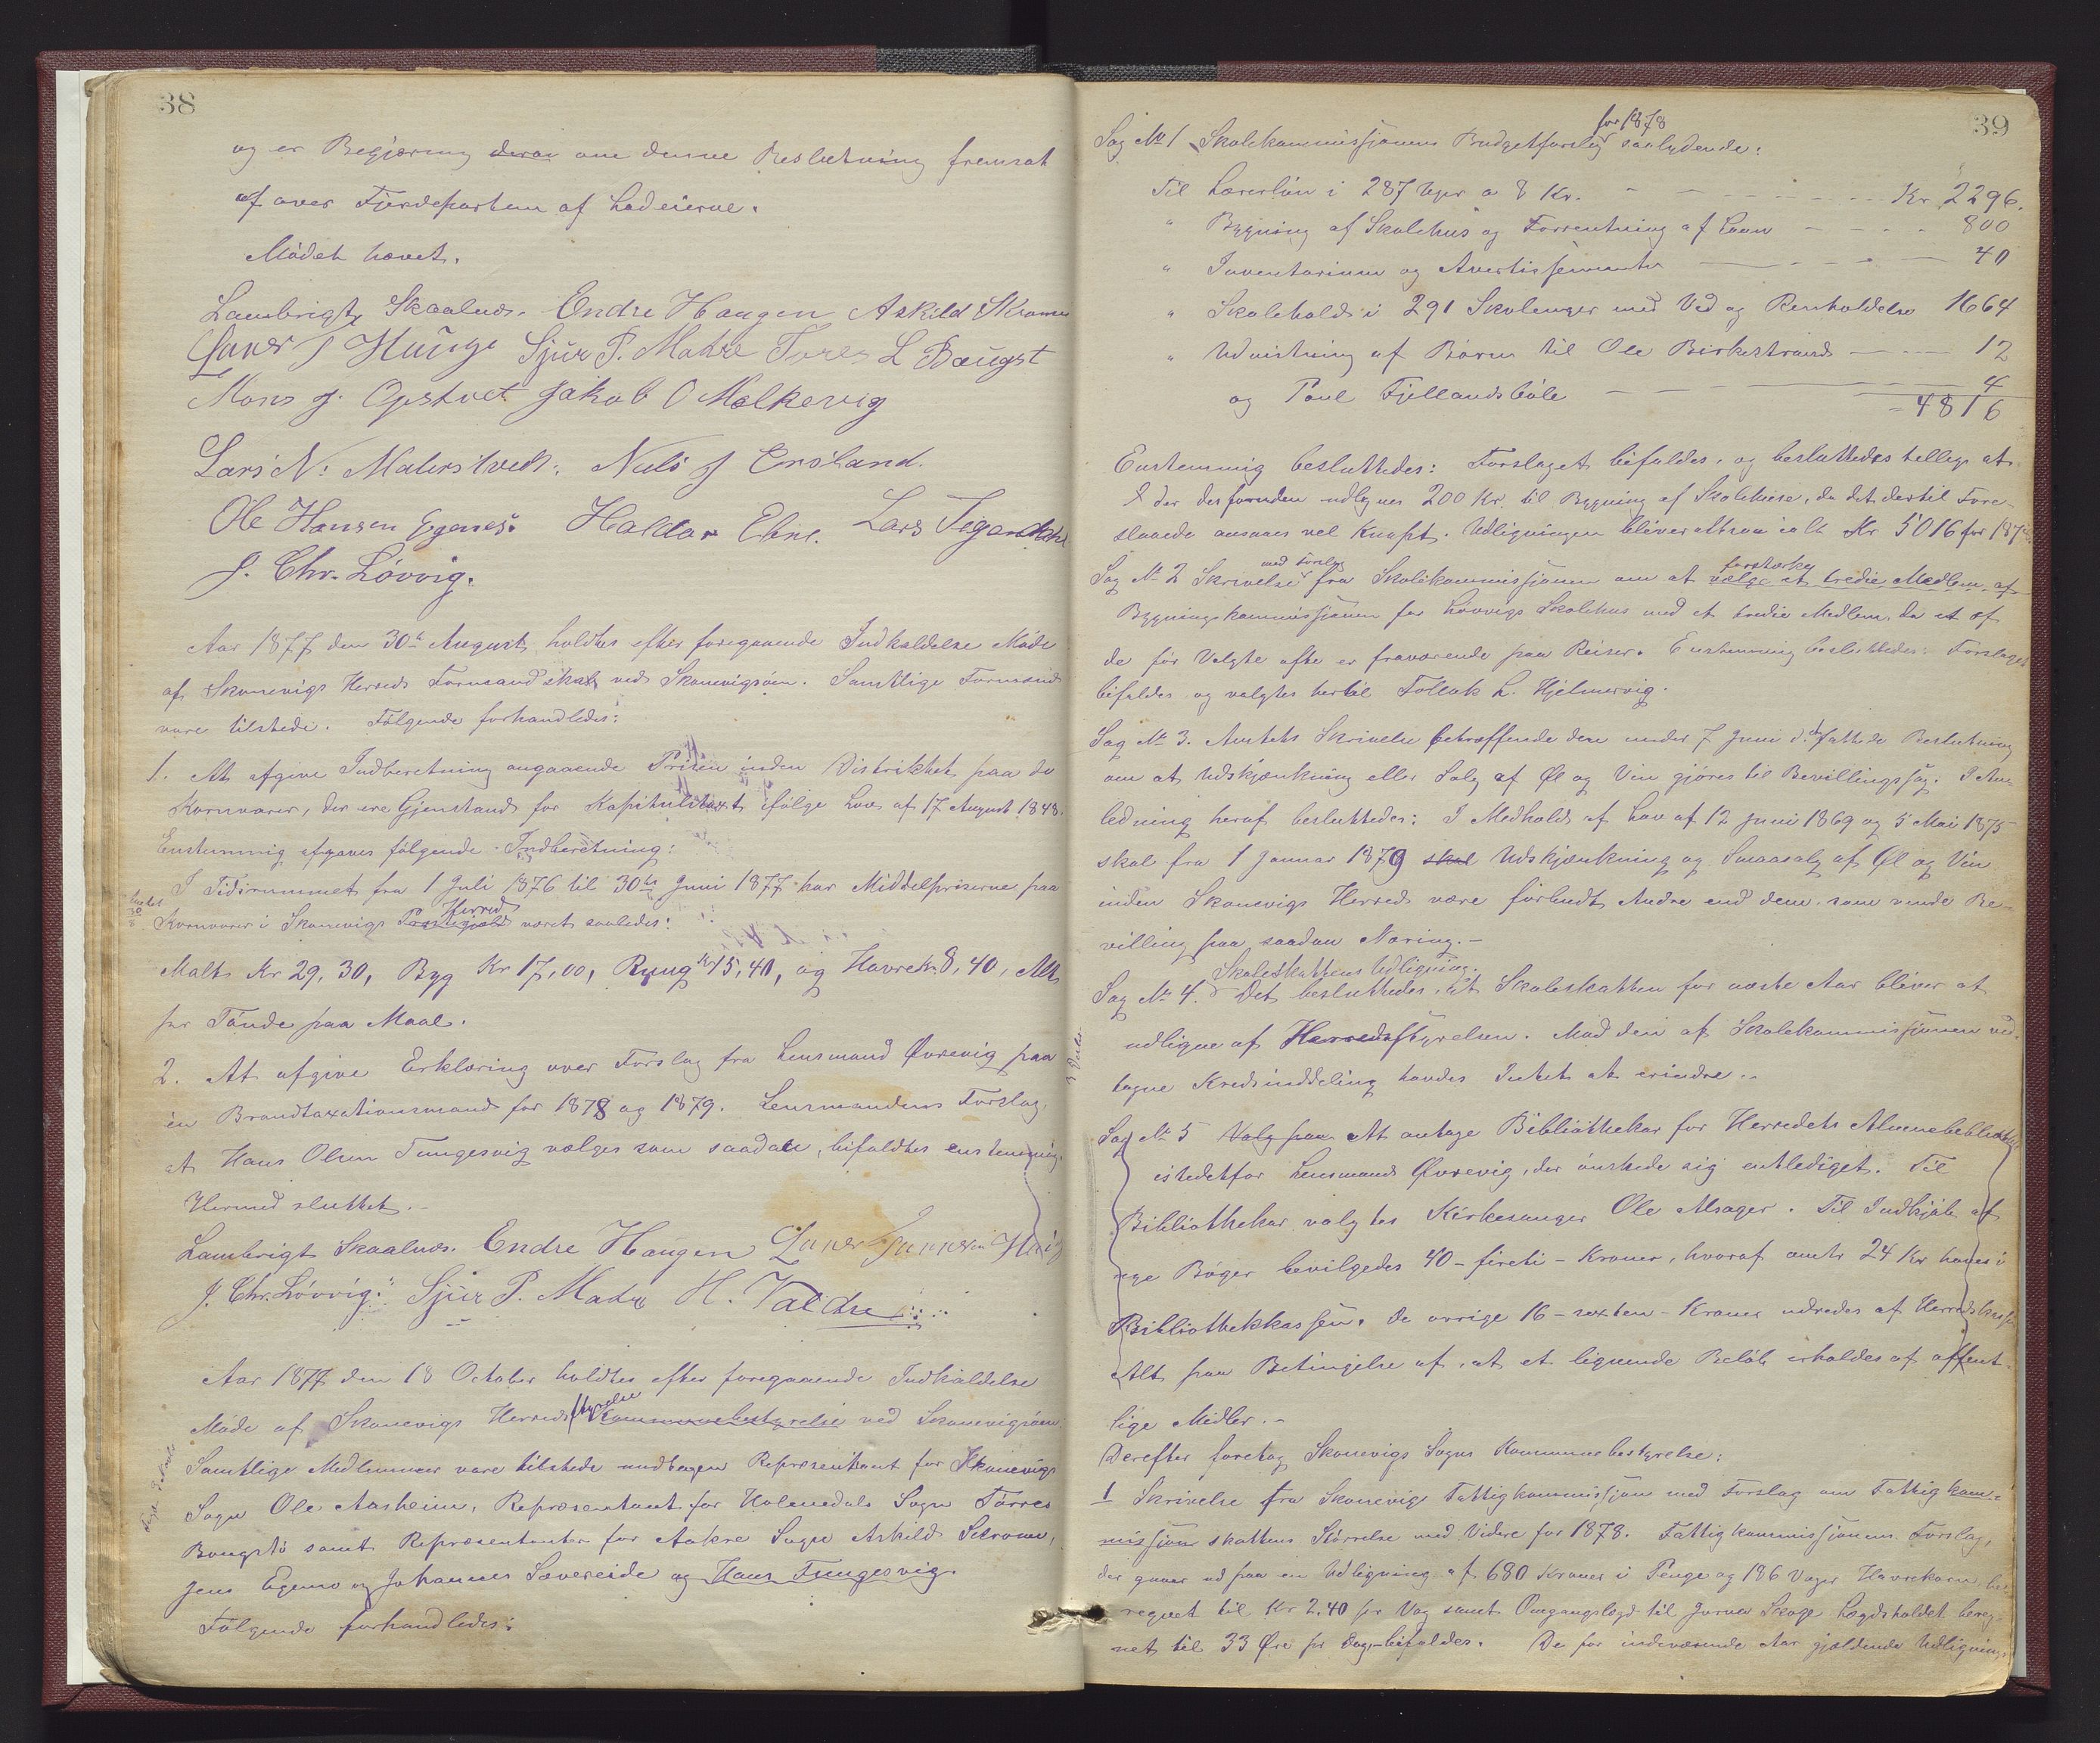 38
og er Begjæring derav om denne Beslutning fremsat
af over Fjerdeparten af Lodeierne.
Mødet hævet.
Lambrigt Skaalnæs. Endre Haugen Askild Skromme
J Hauge Sjur P. Matre Tores L Baugst
Mons J. Opstvet Jakob O Mølkevig
Lars N: Matersthvedt. Nils J Ersland.
Ole Hansen Egenes. Haldor Ebne. Lars
J. Chr. Løvvig.
Aar 1877 den 30te August holdtes efter foregaaende Indkaldelse Møde
af Skonevigs Herreds Formandskab ved Skonevigsøen. Samtlige Formænd
vare tilstede. Følgende forhandledes:
1. At afgive Indberetning angaaende Prisen inden Distriktet paa de
Kornvarer, der ere Gjenstand for Kapitulstaxt ifølge Lov af 17 August 1848.
Enstemmig afgaves følgende Indberetning:
I Tidsrummet fra 1 Juli 1876 til 30te Juni 1877 har Middelpriserne paa
Kornvarer i Skonevigs Præstegjeld Herred været saaledes:
Malt Kr 29,30, Byg Kr 17,00, Rug Kr 15,40, og Havre Kr. 8,40, Alt
pr Tønde paa Maal.
2. At afgive Erklæring over Forslag fra Lensmand Øvrevig paa
en Brandtaxationsmand for 1878 og 1879. Lensmandens Forslag,
at Hans Olsen Tungesvig vælges som saadan, bifaldtes enstemmig.
Hermed sluttet.
Lambrigt Skaalnæs. Endre Haugen
J. Chr. Løvvig. Sjur P. Matre H. Valdre
Aar 1877 den 18 October holdtes efter foregaaende Indkaldelse
Møde af Skonevigs Herredsstyrelse Kommunebestyrelse ved Skonevigsøen.
Samtlige Medlemmer vare tilstede undtagen Repræsentant for Skonevigs
Sogn Ole Aasheim, Repræsentant for Holmedals Sogn Tørres
Bougstø samt Repræsentanter for Aakre Sogn Askild Skromme,
Jens Egenes og Johannes Sævereide og Hans Tungesvig.
Følgende forhandledes:
39
Sag No 1 Skolekommissjonens Budgetforslag for 1878 saalydende:
Til Lærerløn i 287 Uger a 8 Kr. Kr 2296.
" Bygning af Skolehus og Forrentning af Laan 800
" Inventarium og Avertissementer 40
" Skolehold i 291 Skoleuger med Ved og Renholdelse 1664
" Udvistning af Børn til Ole Birkestrand 12
og Poul Fjellandsbøle 4
4816
Enstemmig besluttedes: Forslaget bifaldes, og besluttedes tillige at
der desforuden udlignes 200 Kr. til Bygning af Skolehuse, da det dertil Fore-
slaaede ansaaes vel knapt. Udligningen bliver altsaa ialt Kr 5016 for 1878
Sag No 2 Skrivelse med Forslag fra Skolekommissjonen om at vælge et tredie Medlem af forstærke
Bygningskommissjonen for Løvvigs Skolehus med et tredie Medlem, da et af
de før Valgte ofte er fraværende paa Reiser. Enstemmig besluttedes: Forslaget
bifaldes og valgtes hertil Tollak L. Hjelmervig.
Sag No 3. Amtets Skrivelse betræffende den under 7 Juni d. A. fattede Beslutning
om at Udskjænkning eller Salg af Øl og Vin gjøres til Bevillingssag. I An-
ledning heraf besluttedes: I Medhold af Lov af 12 Juni 1869 og 5 Mai 1875
skal fra 1 Januar 1879 skal Udskjænkning og Smaasalg af Øl og Vin
inden Skonevigs Herred være forbudt Andre end dem som vinde Be-
villing paa saadan Næring.-
Skoleskattens Udligning.
Sag No 4. Det besluttedes, at Skoleskatten for næste Aar bliver at
udligne af Herredsstyrelsen. Mod den af Skolekommissjonen ved-
tagne Kredsinddeling havdes Intet at erindre.-
Sag No 5 Valg paa At antage Bibliothekar for Herredets Almuebibliothek
istedetfor Lensmand Øvrevig, der ønskede sig entlediget. Til
Bibliothekar valgtes Kirkesanger Ole Alsager. Til Indkjøb af
nye Bøger bevilgedes 40 - firti - Kroner, hvoraf omtr 24 Kr haves i
Bibliothekkassen. De øvrige 16 - sexten - Kroner udredes af Herredskassen
Alt paa Betingelse af, at et lignende Beløb erholdes af offent-
lige Midler.-
Derefter foretog Skonevigs Sogns Kommunebestyrelse:
1 Skrivelse fra Skonevigs Fattigkommissjon med Forslag om Fattigkom-
missjons skattens Størrelse med Videre for 1878. Fattigkommissjonens Forslag,
der gaaer ud paa en Udligning af 680 Kroner i Penge og 186 Voger Havrekorn be-
regnet til Kr 2.40 pr Vog samt Omgangslægd til Lægdsholdet bereg-
net til 33 Øre pr Dag-bifaldes. De for indeværende Aar gjældende Udlignings-